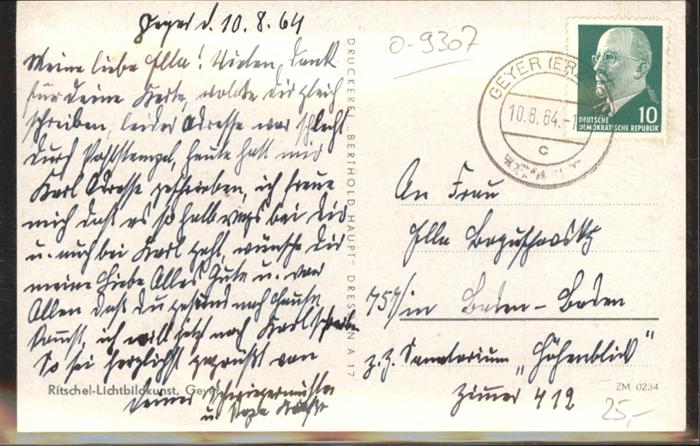 Geyer d. 10.8.64
Meine liebe Ella! Vielen Dank
für Deine Karte, wollte Dir gleich
schreiben, leider Adresse war schlecht
durch Poststempel, heute hatt mir
Karl Adresse geschrieben, ich freue
mich daß es so halbwegs bei Dir
u. auch bei Karl geht, wünsche Dir
meine Liebe Alles Gute u. vor
Allen daß Du gesund nach Hause
kommst, ich will jetzt noch Karl schreiben
So sei herzlichst gegrüßt von
Deiner Schwiegermutter
u.
Ritschel-Lichtbildkunst, Geyer
DRUCKEREI „BERTHOLD HAUPT" DRESDEN A 17
0-9307
GEYER (ERZ
10.8.64.-1
c
DEUTSCHE
DEMOKRATISCHE REPUBLIK
10
An Frau
Ella
757/in Baden-Baden
z.Z. Sanatorium „Höhenblick"
Zimer 412
ZM 0234
25,-